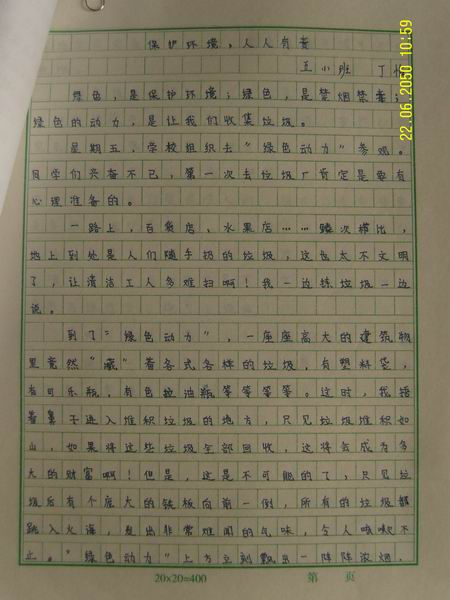 保护环境，人人有责
五小班 丁
绿色，是保护环境；绿色，是禁烟禁毒；
绿色的动力，是让我们收集垃圾。
星期五，学校组织去“绿色动力”参观。
同学们兴奋不已，第一次去垃圾厂肯定是要有
心理准备的。
一路上，百货店、水果店……鳞次栉比，
地上到处是人们随手扔的垃圾，这也太不文明
了，让清洁工人多难扫啊！我一边拣垃圾一边
说。
到了“绿色动力”，一座座高大的建筑物
里竟然“藏”着各式各样的垃圾，有塑料袋，
有可乐瓶，有色拉油瓶等等等等。这时，我捂
着鼻子进入堆积垃圾的地方，只见垃圾堆积如
山，如果将这些垃圾全部回收，这将会成为多
大的财富啊！但是，这是不可能的了，只见垃
圾后有个庞大的铁板向前一倒，所有的垃圾都
跳入火海，发出非常难闻的气味，令人咳嗽不
止。“绿色动力”上方立刻飘出一阵阵浓烟，
20×20=400 第 页
22.06.2050 10:59